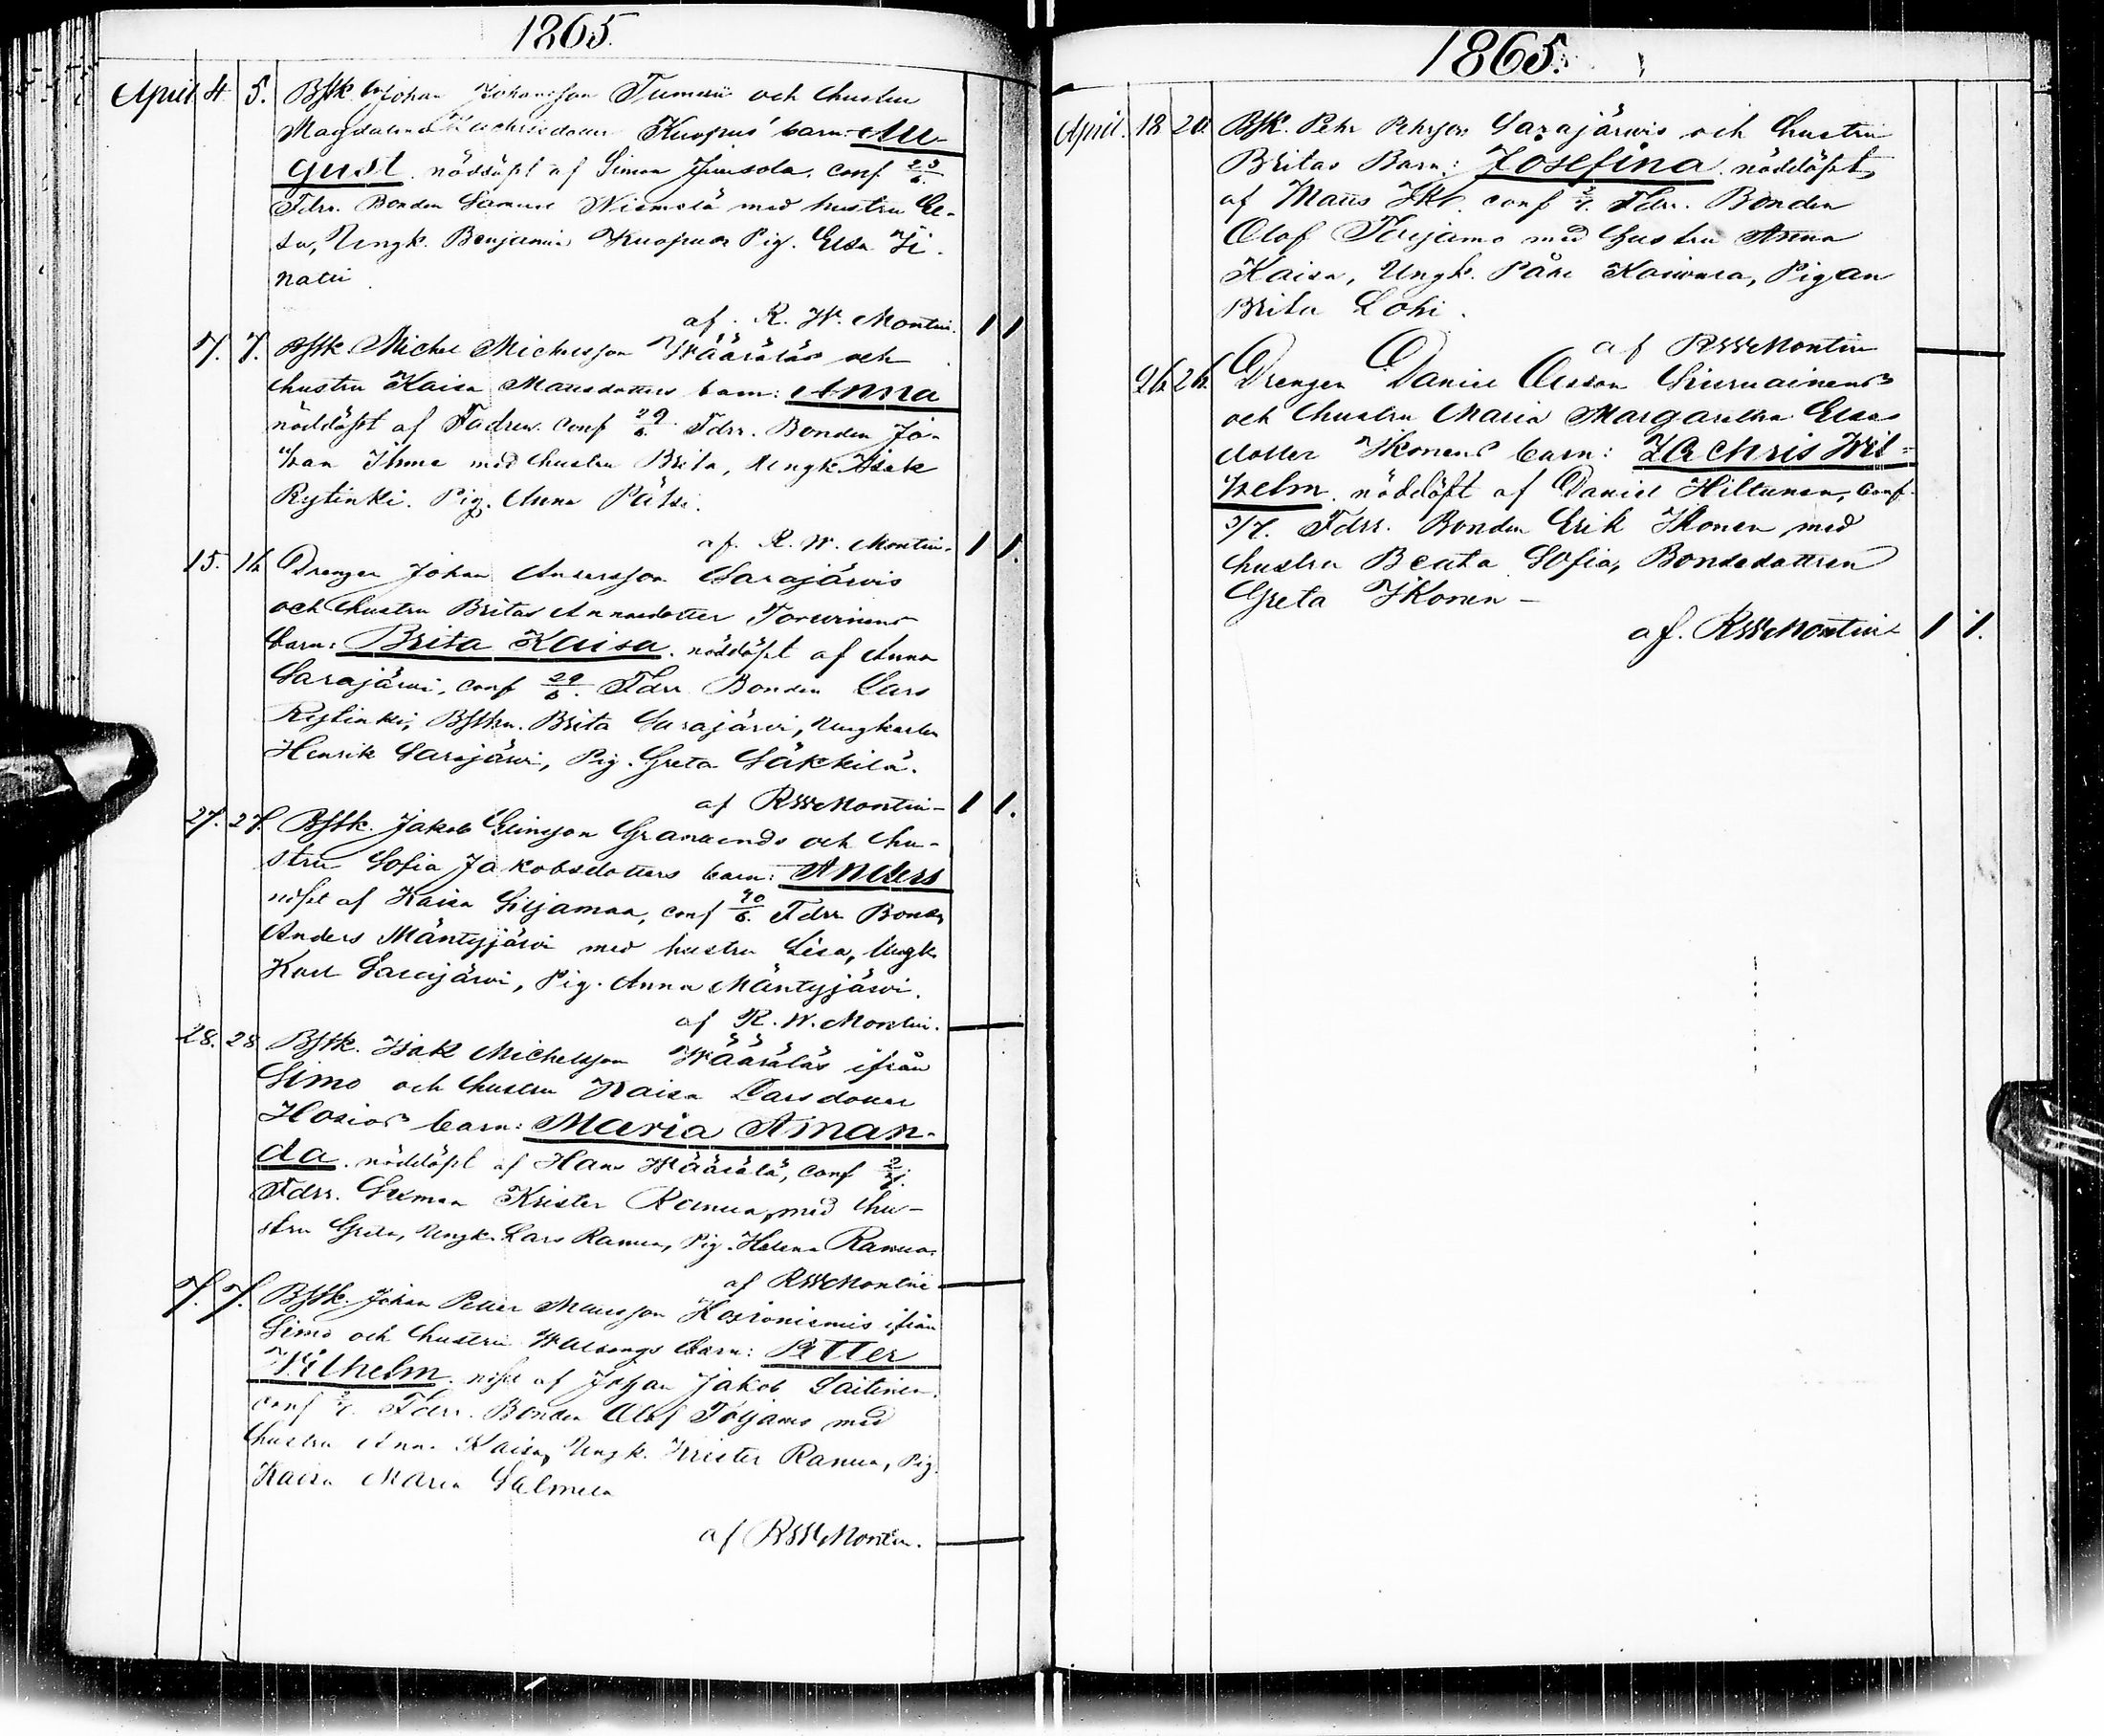 1865.
April 4. 5. Bstk. Johan Johansson Tumeii och hustru
Magdalena Zachrisdotter Kuopus' barn: Au-
gust. nöddöpt af Simon Juusola, conf 23/6.
Fdrr. Bonden Samuel Niemelä med hustru El-
sa, Ungk. Benjamin Kuopus Pig. Elsa Ii-
natti
af. R. W. Montin. 1 1
7. 7. Bstk. Michel Michelsson Wääräläs och
hustru Kaisa Mattsdotters barn: Anna
nöddöpt af Fadren. conf 29/6. Fdrr. Bonden Jo-
han Ihme med hustru Brita, Ungk. Isak
Rytinki. Pig. Anna Pätsi.
af. R. W. Montin. 1 1.
15. 16. Drengen Johan Andersson Sarajärvis
och hustru Britas Annasdotter Torvinens
barn: Brita Kaisa. nöddöpt af Anna
Sarajärvi, conf 29/6. Fdrr Bonden Lars
Rytinki, Bsthn. Brita Sarajärvi, Ungkarlen
Henrik Sarajärvi, Pig. Greta Säkkilä.
af RWMontin 1 1.
27. 27. Bstk. Jakob Granlunds och hu-
stru Sofia Jakobsdotters barn: Anders
nöpt af Kaisa Siljamaa, conf 30/6. Fdrr Bonden
Anders Mäntyjärvi med hustru Lisa, Ungk.
Karl Sarajärvi, Pig. Anna Mäntyjärvi.
af R. W. Montin.
28. 28 Bstk. Isak Michelsson Wääräläs ifrån
Simo och hustru Kaisa Larsdotter
Hosios barn: Maria Aman-
da. nöddöpt af Hans Wäärälä, conf 2/7.
Fdrr. Krister Ranua, med hu-
stru Greta, Ungk. Lars Ranua, Pig. Helena Ranua.
af RWMontin
7. 7. Bstk. Johan Petter Mattsson ifrån
Simo och hustru Walborgs barn: Petter
Wilhelm. nöpt af Johan Jakob Laitinen.
conf 2/7. Fdrr. Bonden Olof Toljamo med
hustru Anna Kaisa, Ungk. Krister Ranua, Pig.
Kaisa Maria Salmela
af RWMontin.
1865.
April. 18 20. Bstk. Pehr Pehrsson Sarajärvis och hustru
Britas Barn: Josefina. nöddöpt
af Matts conf 2/7. Fdrr. Bonden
Olof Toljamo med hustru Anna
Kaisa, Ungk. Påhl Pigan
Brita Lohi.
af RWMontin
26. 26. Drengen Daniel Olsson Siuruainens
och hustru Maria Margaretha Elsas
dotter Ikonens barn: Zachris Wil-
helm. nöddöpt af Daniel Hiltunen, conf.
3/7. Fdrr. Bonden Erik Ikonen med
hustru Beata Sofia, Bondedottren
Greta Ikonen –
af. RWMontin 1 1.